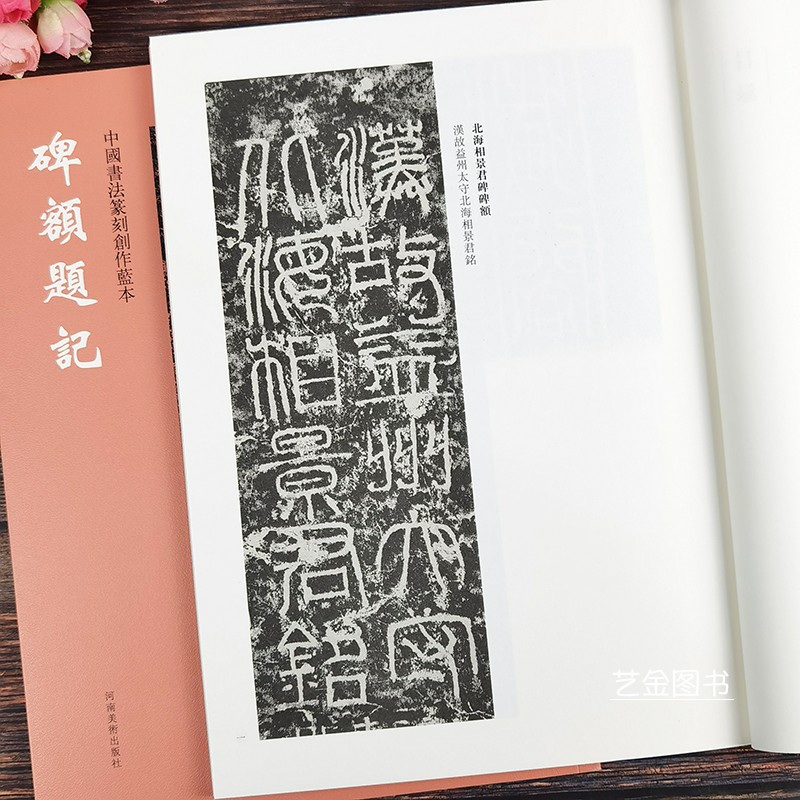 中國書法篆刻創作藍本
碑額題記
河南美術出版社
北海相景君碑碑額
漢故益州太守北海相景君銘
漢故益州太守
北海相景君銘
艺金图书